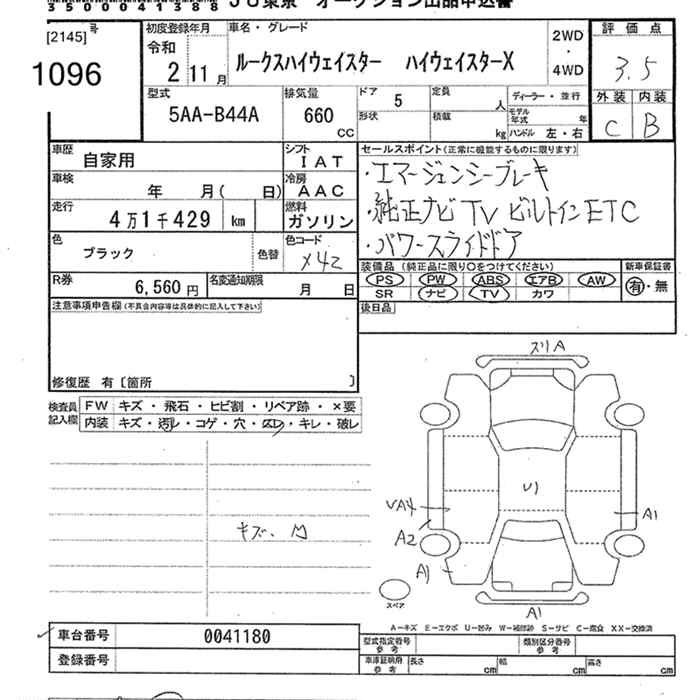 350000041388
JU東京 オークション出品申込書
[2145] 号
1096
初度登録年月
令和
2 11月
車名・グレード
ルークスハイウェイスター ハイウェイスターX
2WD
・
4WD
評価点
3.5
外装 内装
C B
型式
5AA-B44A
排気量
660
CC
ドア 5
形状
定員 人
積載 kg
ディーラー・並行
モデル年式 年
ハンドル 左・右
車歴
自家用
シフト
IAT
車検
年 月( 日)
冷房
AAC
走行
4万1千429 km
燃料
ガソリン
色
ブラック
色替
色コード
X42
R券
6,560円
名変通知期限
月 日
セールスポイント(正常に機能するものに限ります)
・エマージェンシーブレーキ
・純正ナビ TV ビルトインETC
・パワースライドドア
装備品 (純正品に限り○をつけてください)
新車保証書
PS PW ABS エアB AW
SR ナビ TV カワ
有・無
後日品
注意事項申告欄(不具合内容等は具体的に記入して下さい)
修復歴 有〔箇所 〕
検査員記入欄
FW キズ・飛石・ヒビ割・リペア跡・×要
内装 キズ・汚レ・コゲ・穴・スレ・キレ・破レ
キズ、凹
スリA
U1
UA4
A2
A1
A1
A1
スペア
A-キズ E-エクボ U-凹み W-補修跡 S-サビ C-腐食 XX-交換済
車台番号 0041180
登録番号
型式指定番号
参考
類別区分番号
参考
車庫証明用
参考
長さ cm 幅 cm 高さ cm